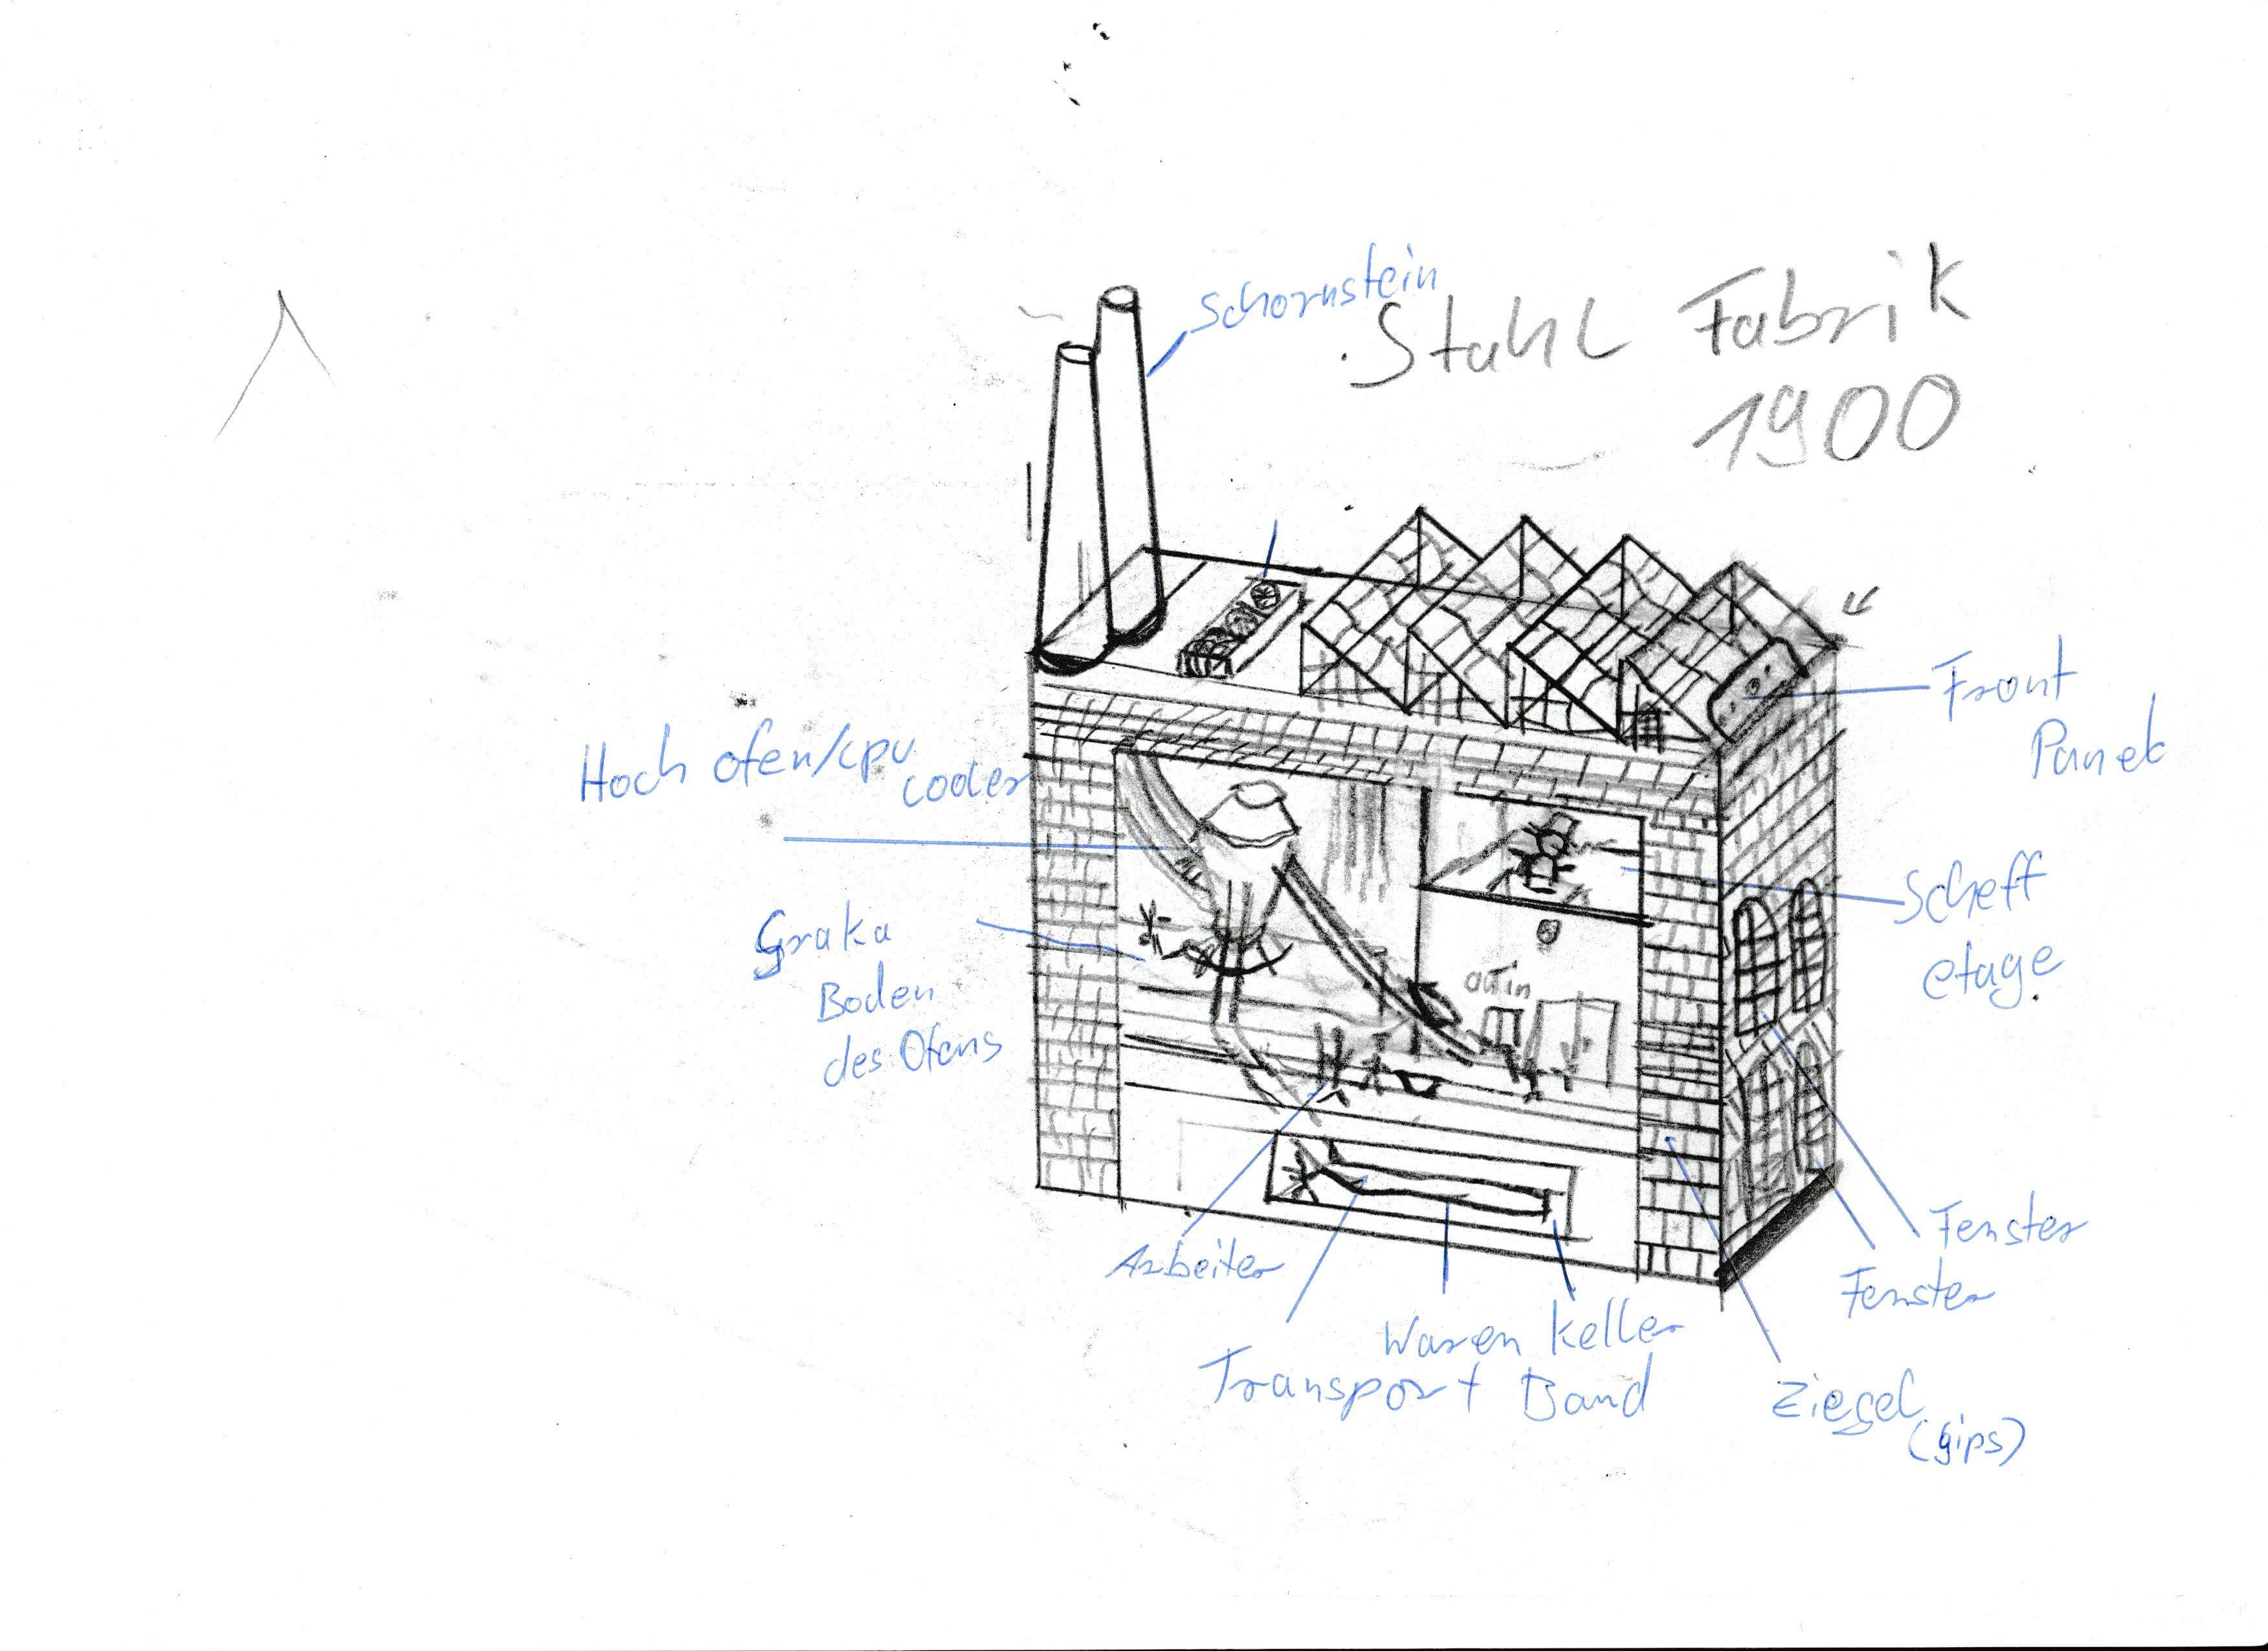 Schornstein
Stahl Fabrik
1900
Front
Panel
Hoch ofen/cpu
cooler
Scheff
etage
Graka
Boden
des Ofens
out in
Fenster
Fenster
Arbeiter
Waren Keller
Transport Band
Ziegel
(gips)